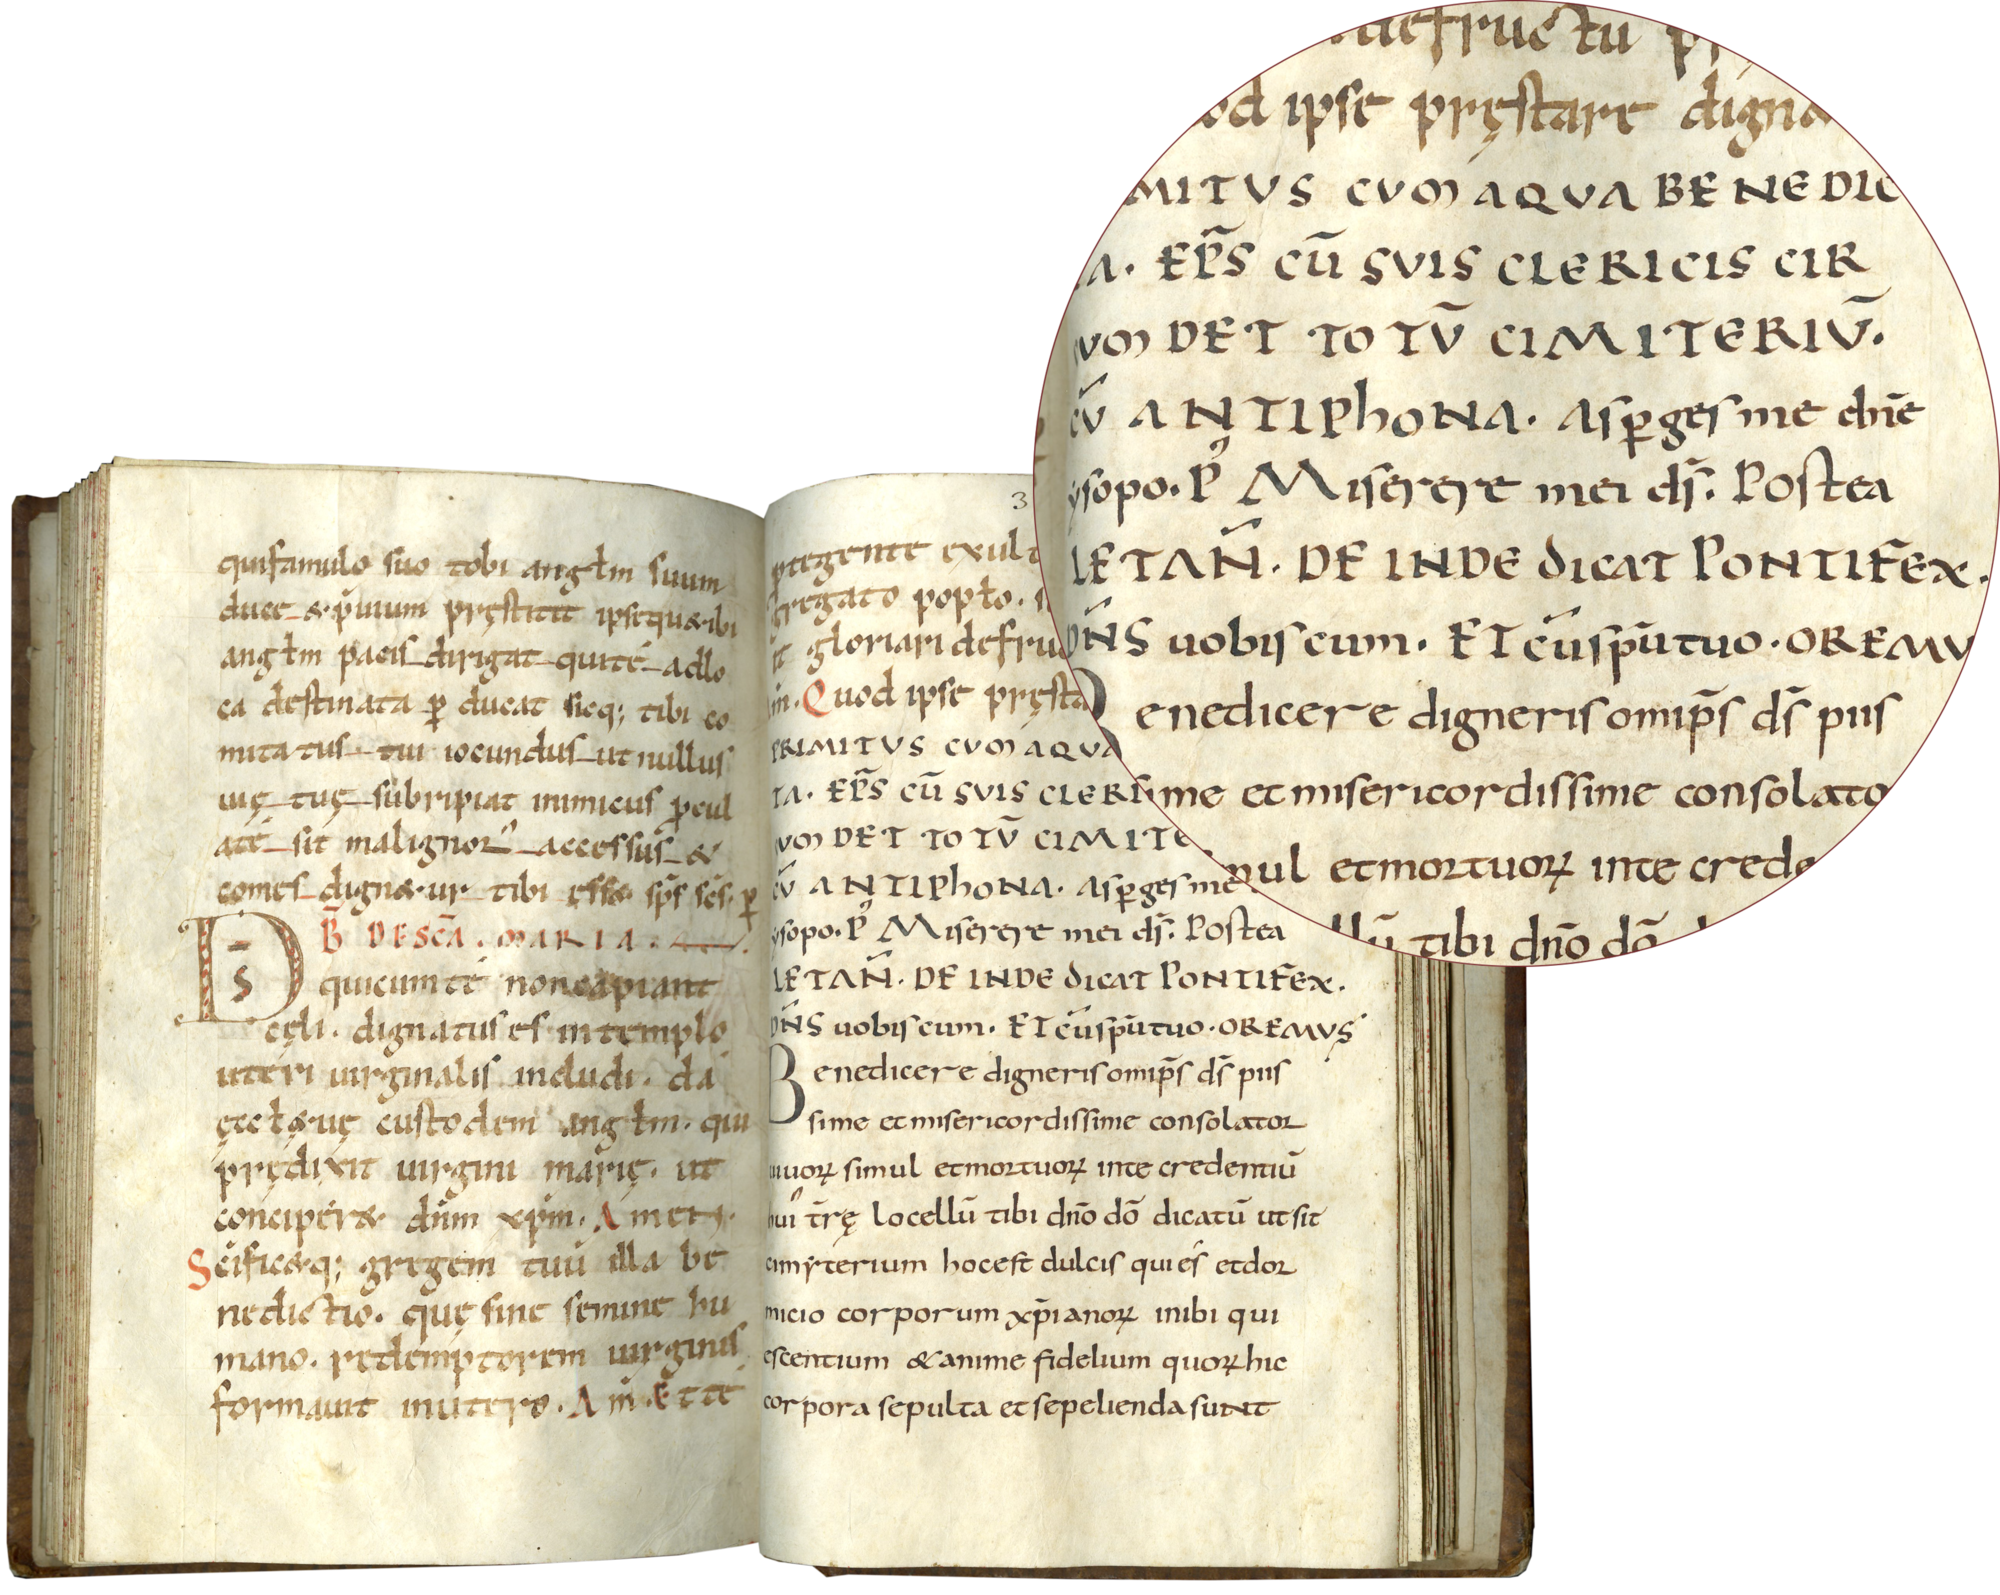 quifamulo suo tobi angłm suum
duce &p̄uium pręstitit ipsequ&ibi
angłm pacis dirigat quité adlo
ca destinata ꝑ ducat sicq; tibi co
mitatus tui iocundus ut nullus
uię tuę subripiat inimicus procul
até sit malignoꝝ accessus &
comes dign&ur tibi esse sp̄s sc̄s. ꝑ
B̄ DESC̄A. MARIA.
D̄s quicumté noncapiant
cęli. dignatus es intemplo
uteri uirginalis includi. da
ęccł&uę custodem angłm. qui
prędixit uirgini marię. ut
concíper& dn̄m xp̄m. Amen.
Sc̄ific&q; gregem tuū illa be
nedictio. quę sine semine hu
mano. redemptorem uirginis
formauit inutero. Am̄. Ette
3
ptegente exul
gregato popło.
gloriari defru
Quod ipse pręsta
RIMITUS CUM AQUA
TA. EP̄S CŪ SUIS CLERI
UM DET TOTŪ CIMITE
CŪ ANTIPHONA. Asꝑges me
ysopo. P̄ Miserere mei ds̄. Postea
LETAN̄. DEINDE dicat PONTIFEX.
DN̄S uobiscum. ET cūsp̄utuo. OREMUS
Benedicere digneris omip̄s ds̄ piis
sime etmisericordissime consolator
uiuoꝝ simul etmortuoꝝ inte credentiū
hui' tr̄ę locellū tibi dn̄o dō dicatū utsit
cimyterium hocest dulcis quies etdor
micio corporum xp̄ianoꝝ inibi qui
escentium &anime fidelium quoꝝ hic
corpora sepulta etsepelienda sunt
defructu
od ipse pręstare digna
MITUS CUM AQUA BENEDIC
A. EP̄S CŪ SUIS CLERICIS CIR
UM DET TOTŪ CIMITERIŪ.
CŪ ANTIPHONA. Asꝑges me dn̄e
ysopo. P̄ Miserere mei ds̄. Postea
LETAN̄. DEINDE dicat PONTIFEX.
DN̄S uobiscum. ET cūsp̄utuo. OREMU
enedicere digneris omip̄s ds̄ piis
me etmisericordissime consolato
mul etmortuoꝝ inte crede
llū tibi dn̄o dō